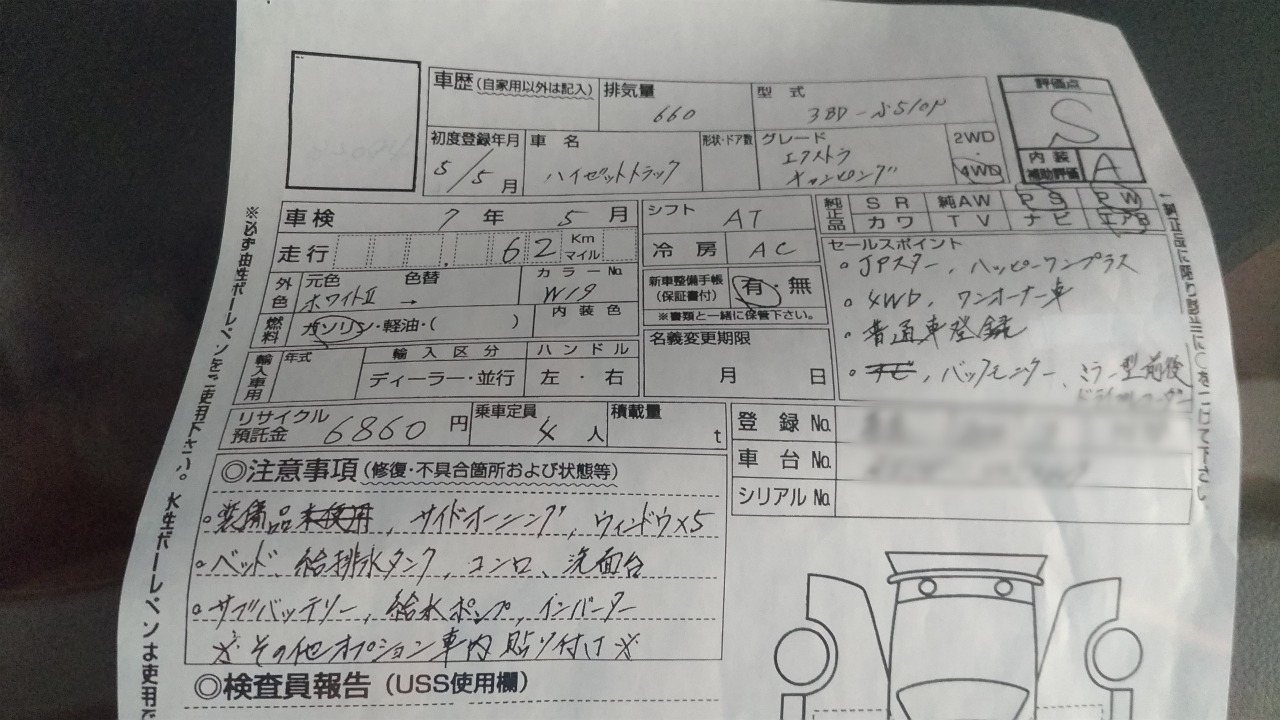 車歴(自家用以外は記入) 排気量 660 型式 3BD-S510P 評価点 S
初度登録年月 5/5月 車名 ハイゼットトラック 形状・ドア数 グレード エクストラ キャンピング 2WD・4WD 内装補助評価 A
車検 7年 5月 シフト AT 純正品 SR 純AW PS PW
走行 62 Km マイル 冷房 AC カワ TV ナビ エアB
外色 元色 ホワイトII → 色替 カラーNo. W19 新車整備手帳(保証書付) 有・無 ※書類と一緒に保管下さい。
燃料 ガソリン・軽油・( ) 内装色
輸入車用 年式 輸入区分 ディーラー・並行 ハンドル 左・右 名義変更期限 月 日
セールスポイント
。JPスター, ハッピーワンプラス
。4WD, ワンオーナー車
。普通車登録
。ナビ, バックモニター, ミラー型前後
ドライブレコーダー
リサイクル預託金 6860円 乗車定員 4人 積載量 t
登録No.
車台No.
シリアルNo.
◎注意事項(修復・不具合箇所および状態等)
。装備品未使用, サイドオーニング, ウィンドウ×5
。ベッド、給排水タンク, コンロ、洗面台
。サブバッテリー, 給水ポンプ, インバーター
※その他オプション車内貼り付け※
◎検査員報告(USS使用欄)
※必ず油性ボールペンをご使用下さい。水性ボールペンは使用